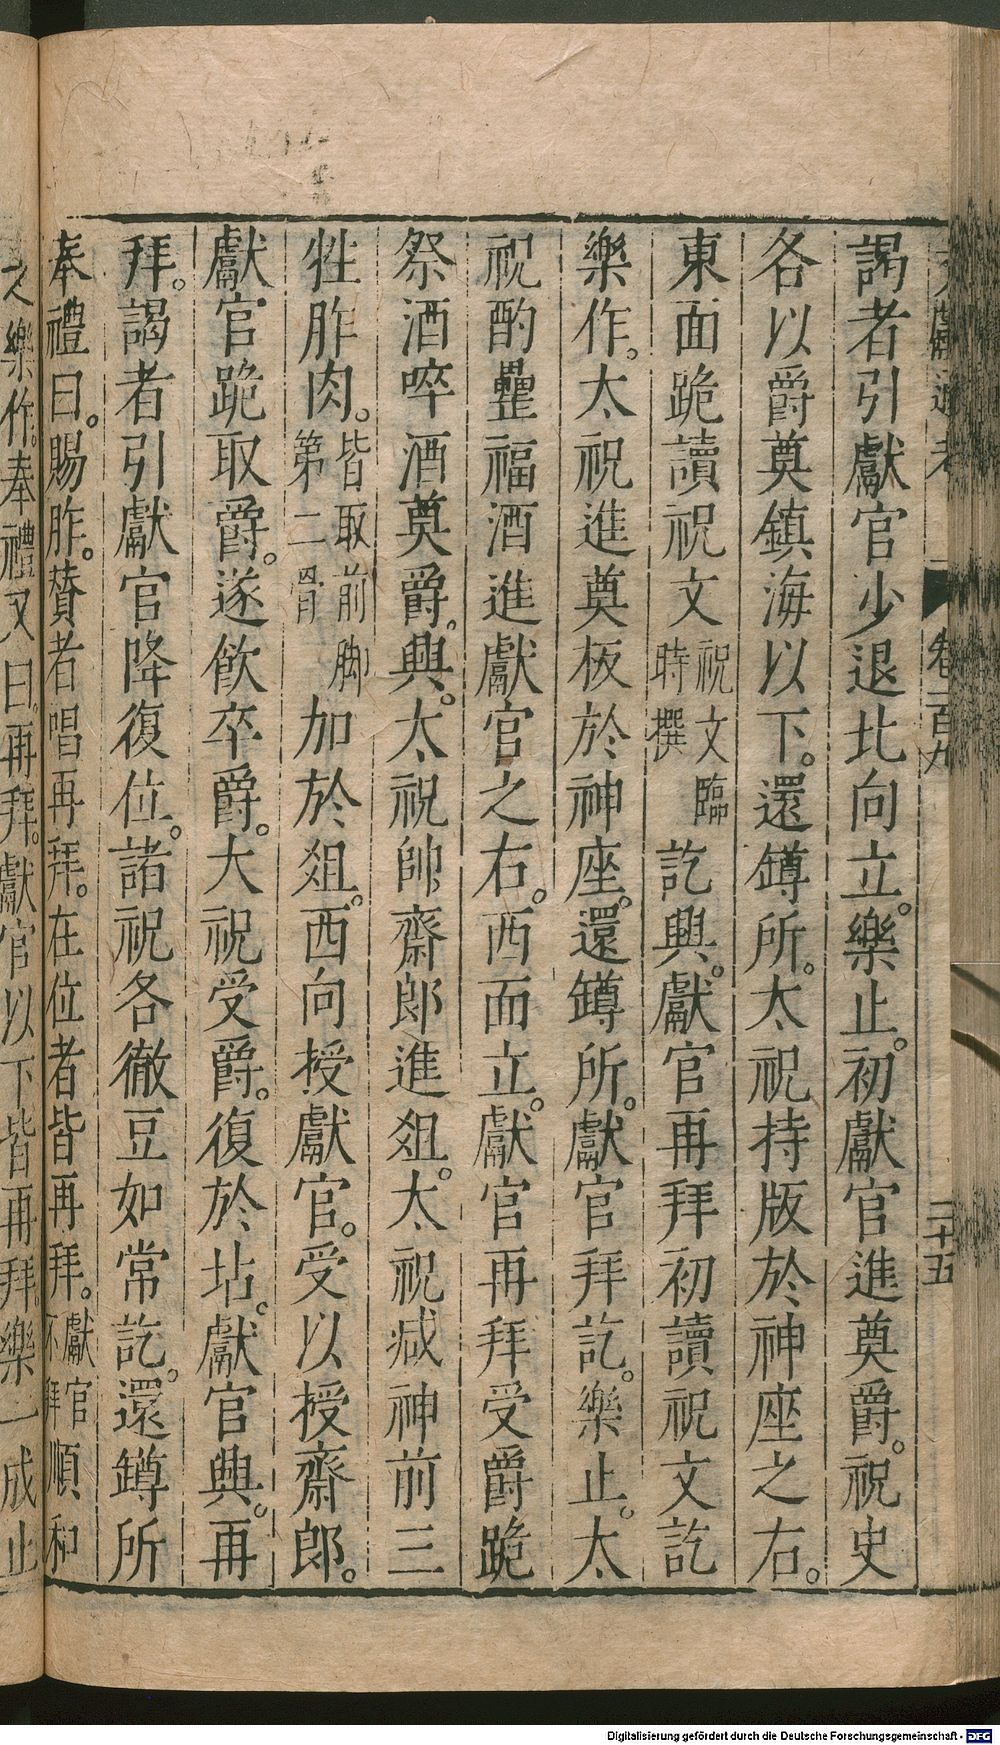 卷一百九
二十五
謁者引獻官少退北向立。樂止。初獻官進奠爵。祝史
各以爵奠鎮海以下。還罇所。太祝持版於神座之右。
東面跪讀祝文祝文臨時撰訖興。獻官再拜初讀祝文訖
樂作。太祝進奠板於神座。還罇所。獻官拜訖。樂止。太
祝酌罍福酒進獻官之右。西面立。獻官再拜受爵跪
祭酒啐酒奠爵。興。太祝帥齋郎進俎。太祝减神前三
牲胙肉。皆取前脚第二骨加於俎。西向授獻官。受以授齋郎。
獻官跪取爵。遂飲卒爵。大祝受爵。復於坫。獻官興。再
拜。謁者引獻官降復位。諸祝各徹豆如常訖。還罇所
奉禮曰。賜胙。賛者唱再拜。在位者皆再拜。獻官不拜順和
之樂作。奉禮又曰。再拜。獻官以下皆再拜。樂一成止
Digitalisierung gefördert durch die Deutsche Forschungsgemeinschaft - DFG